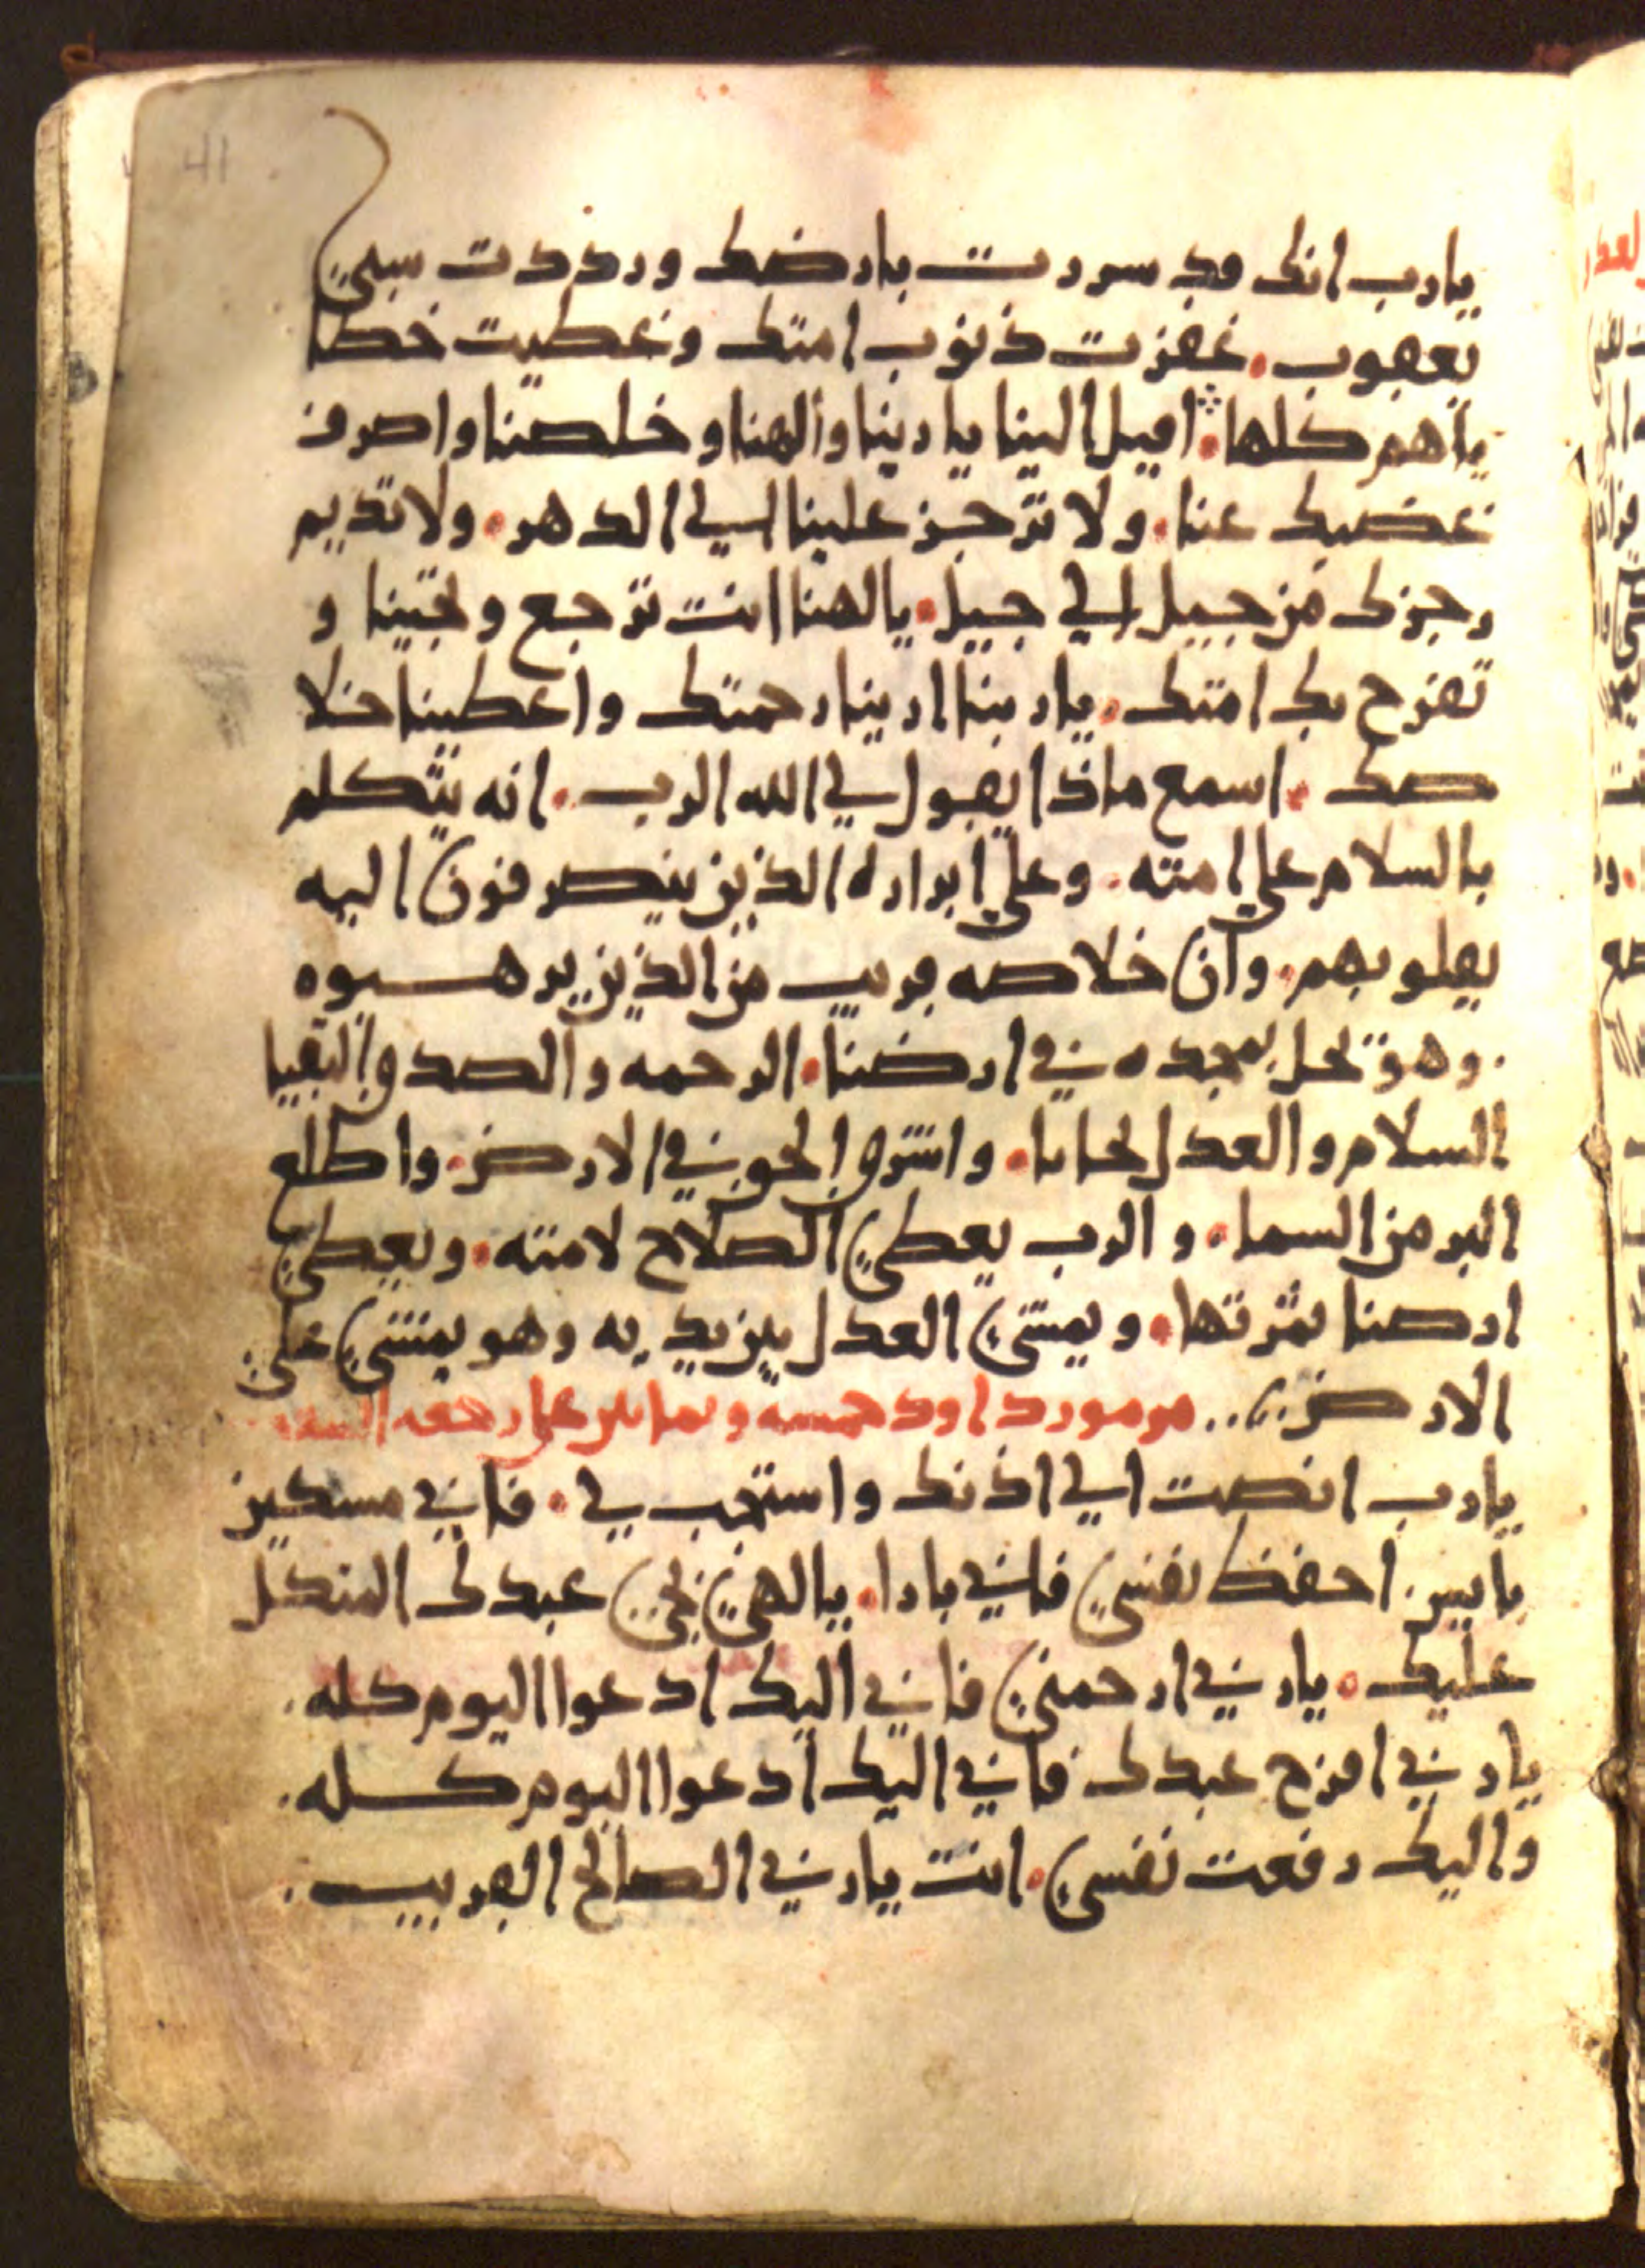 41
يارب انك قد سررت بارضك ورددت سبي
يعقوب. غفرت ذنوب امتك وغطيت خطا
ياهم كلها. اميل الينا ياربنا والهنا وخلصنا واصرف
غضبك عنا. ولا ترجز علينا الي الدهر. ولا تديم
رجزك من جيل الي جيل. يالهنا انت ترجع وتحيينا و
تفرح بك امتك. ياربنا ارينا رحمتك واعطينا خلا
صك. اسمع ماذا يقول لي الله الرب. انه يتكلم
بالسلام علي امته. وعلي ابراره الذين ينصرفون اليه
بقلوبهم. وان خلاصه قريب من الذين يرهبوه
. وهو يحل بمجده في ارضنا. الرحمه والصدق التقيا
السلام والعدل تحابا. واشرق الحق في الارض. واطلع
البر من السما. والرب يعطي الصلاح لامته. ويعطي
ارضنا ثمرتها. ويمشي العدل بين يديه وهو يمشي علي
الارض.. مزمور داود خمسه وثمانين علي رجعه
يارب انصت الي اذنك واستجب لي. فاني مسكين
بايس. احفظ نفسي فاني بارا. يالهي نجي عبدك المتكل
عليك. ياربي ارحمني فاني اليك ادعوا اليوم كله.
ياربي افرح عبدك فاني اليك ادعوا اليوم كله.
واليك رفعت نفسي. انت ياربي الصالح القريب.